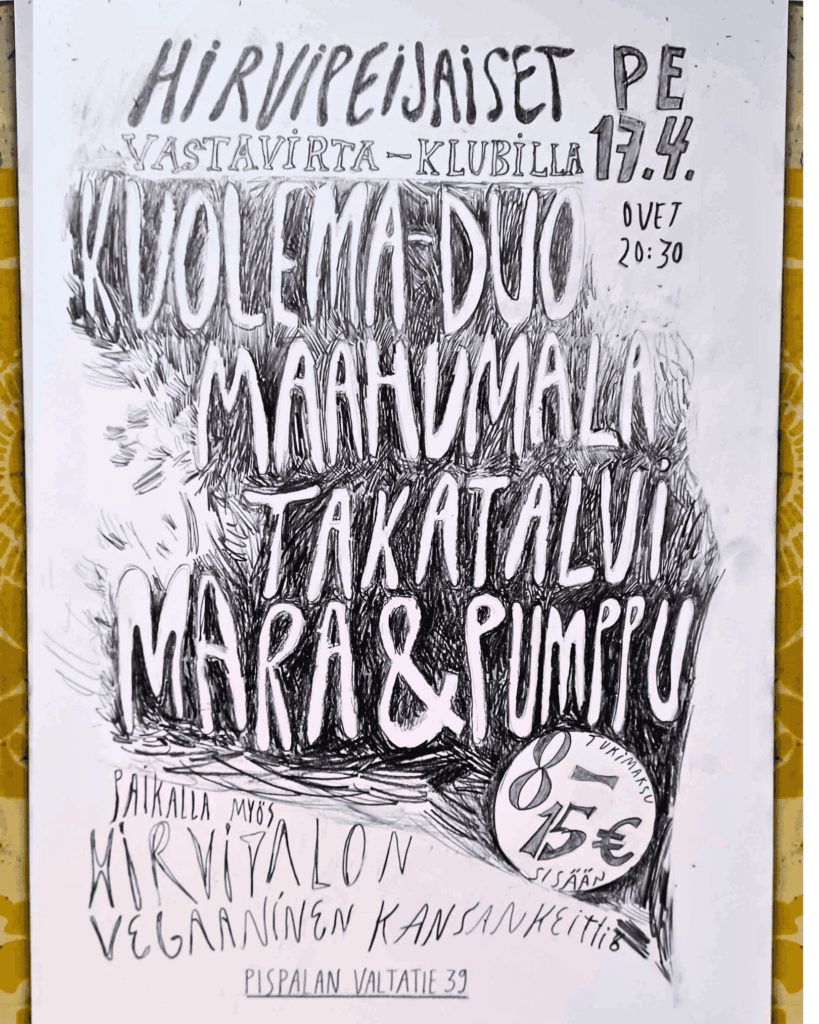 HIRVIPEIJAISET
PE
17.4.
VASTAVIRTA-KLUBILLA
OVET
20:30
KUOLEMA-DUO
MAAHUMALA
TAKATALVI
MARA & PUMPPU
TUKIMAKSU
8-
15€
SISÄÄN
PAIKALLA MYÖS
HIRVITALON
VEGAANINEN KANSANKEITTIÖ
PISPALAN VALTATIE 39